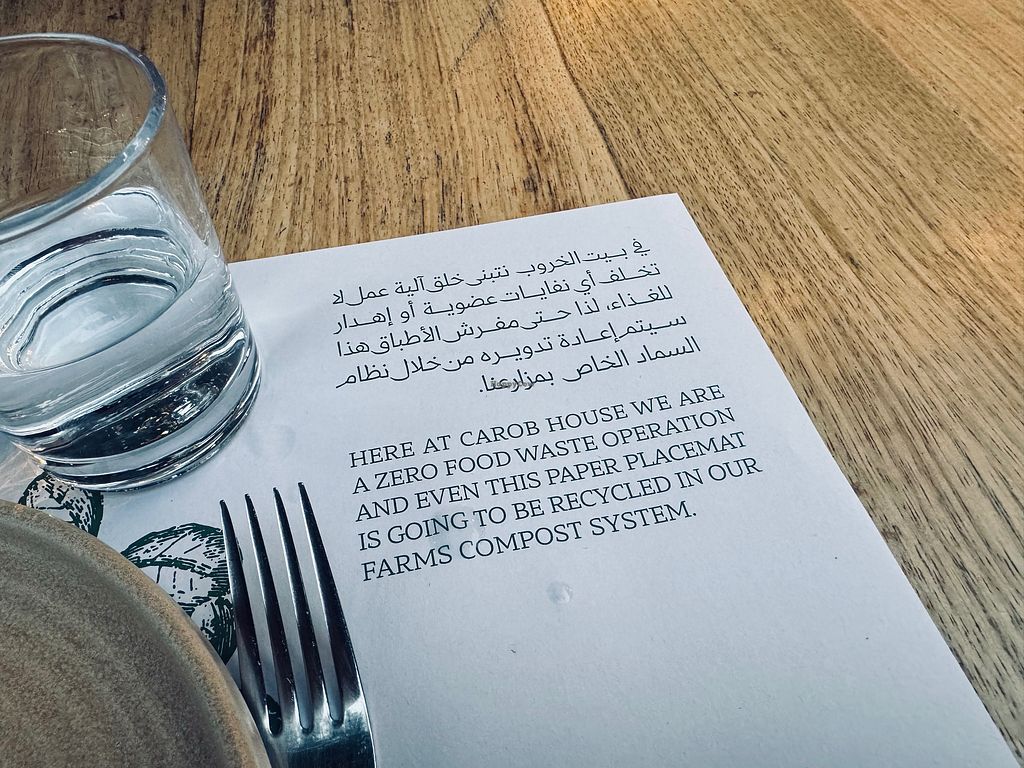 في بيت الخروب نتبنى خلق آلية عمل لا
تخلف أي نفايات عضوية أو إهدار
للغذاء، لذا حتى مفرش الأطباق هذا
سيتم إعادة تدويره من خلال نظام
السماد الخاص بمزارعنا.
HERE AT CAROB HOUSE WE ARE
A ZERO FOOD WASTE OPERATION
AND EVEN THIS PAPER PLACEMAT
IS GOING TO BE RECYCLED IN OUR
FARMS COMPOST SYSTEM.